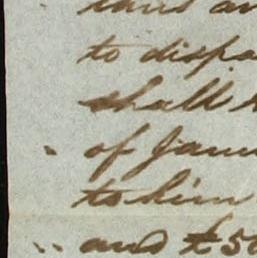 to dispo
shall
of Janu
to him
and £50